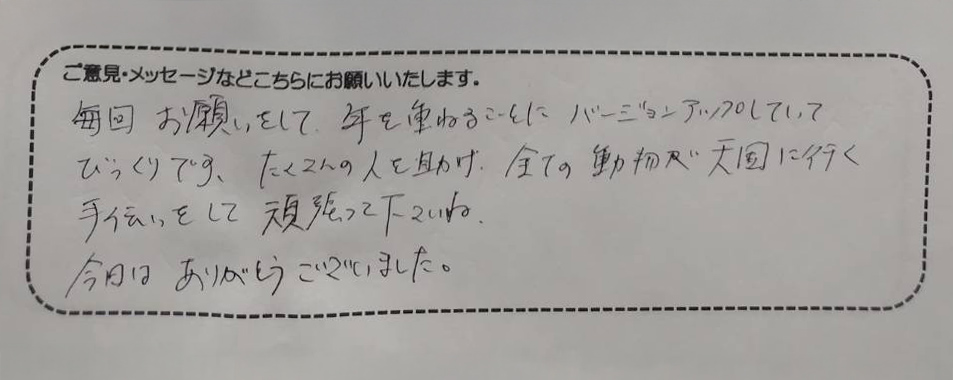 ご意見・メッセージなどこちらにお願いいたします。
毎回 お願いをして、年を重ねることに バージョンアップしていって
びっくりです、たくさんの人を助け、全ての動物が天国に行く
手伝いをして 頑張って下さいね。
今日は ありがとうございました。